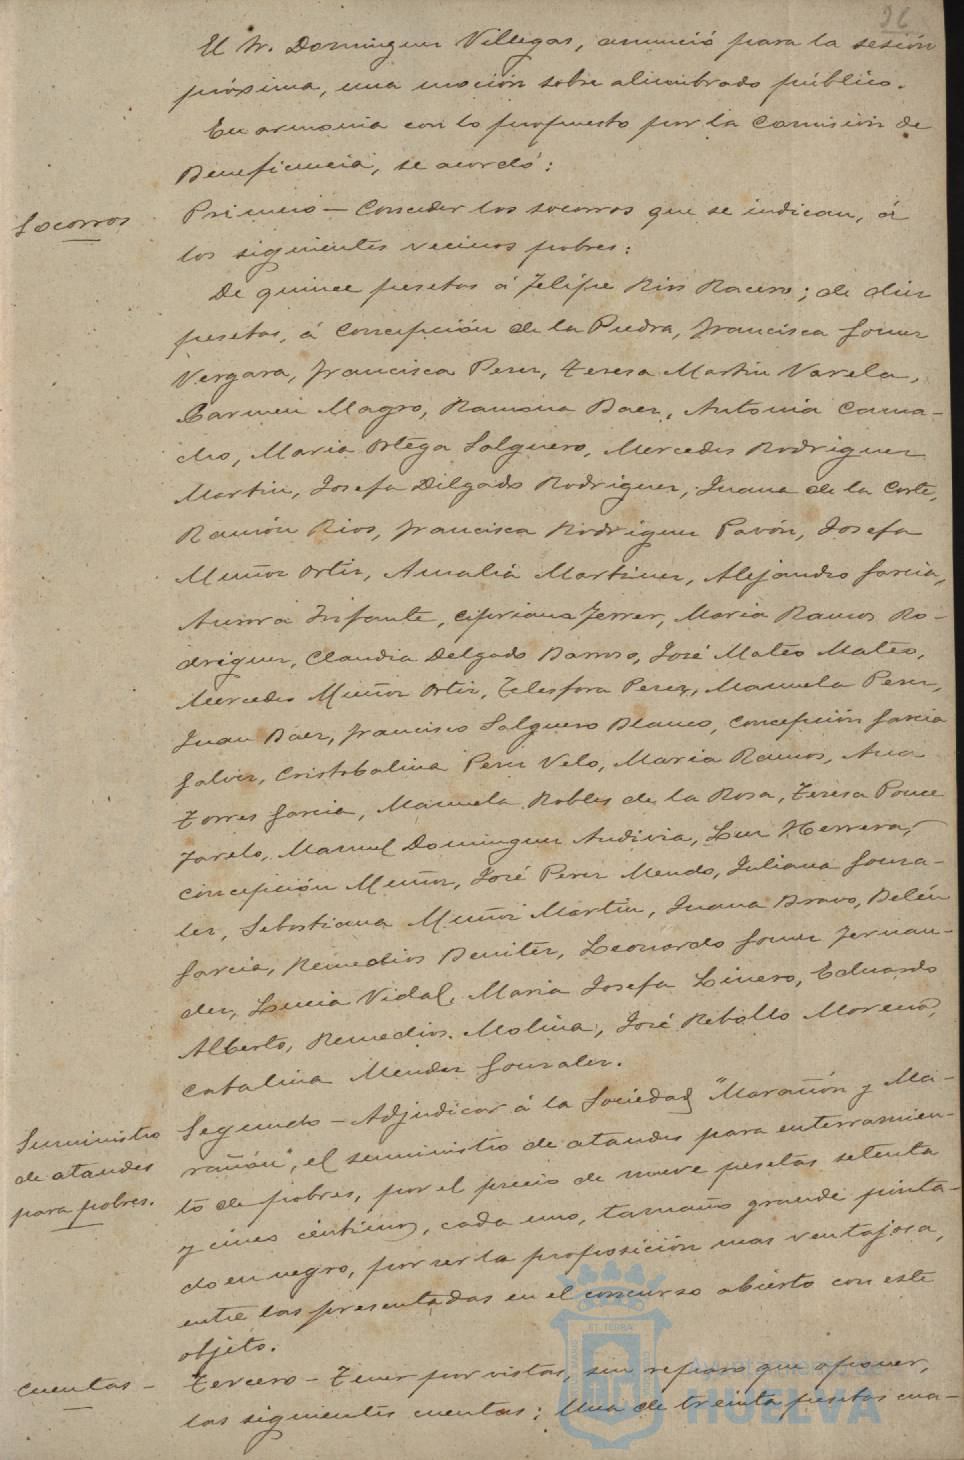 96
El Sr. Dominguez Villegas, anunció para la sesión
próxima, una moción sobre alumbrado público.
En armonia con lo propuesto por la Comisión de
Beneficencia, se acordó:
Socorros
Primero — Conceder los socorros que se indican, á
los siguientes vecinos pobres:
De quince pesetas á Felipe Rios Racero; de diez
pesetas, á Concepción de la Piedra, Francisca Gomez
Vergara, Francisca Perez, Teresa Martin Varela,
Carmen Magro, Ramona Baez, Antonia Cama-
cho, Maria Ortega Salguero, Mercedes Rodriguez
Martin, Josefa Delgado Rodriguez, Juana de la Corte,
Ramón Rios, Francisca Rodriguez Pavón, Josefa
Muñoz Ortiz, Amalia Martinez, Alejandro Garcia,
Aurora Infante, Cipriana Ferrer, Maria Ramos Ro-
driguez, Claudia Delgado Barroso, José Mateo Mateo,
Mercedes Muñoz Ortiz, Telesfora Perez, Manuela Perez,
Juan Baez, Francisco Salguero Blanco, Concepción Garcia
Galvez, Cristobalina Perez Velo, Maria Ramos, Ana
Torres Garcia, Manuela Robles de la Rosa, Teresa Ponce
Farelo, Manuel Dominguez Andivia, Luz Herrera,
Concepción Muñoz, José Perez Mendo, Juliana Gonza-
lez, Sebastiana Muñoz Martin, Juana Bravo, Belén
Garcia, Remedios Benitez, Leonardo Gomez Fernan-
dez, Lucia Vidal, Maria Josefa Linero, Eduardo
Alberto, Remedios Molina, José Rebollo Moreno,
Catalina Mendez Gonzalez.
Suministro
de ataudes
para pobres.
Segundo — Adjudicar á la Sociedad "Marañón y Ma-
rañón", el suministro de ataudes para enterramien-
to de pobres, por el precio de nueve pesetas setenta
y cinco céntimos, cada uno, tamaño grande pinta-
do en negro, por ser la proposición mas ventajosa,
entre las presentadas en el concurso abierto con este
objeto.
Cuentas —
Tercero — Tener por vistas, sin reparo que oponer,
las siguientes cuentas: Una de treinta pesetas cua-
Ayuntamiento de
HUELVA